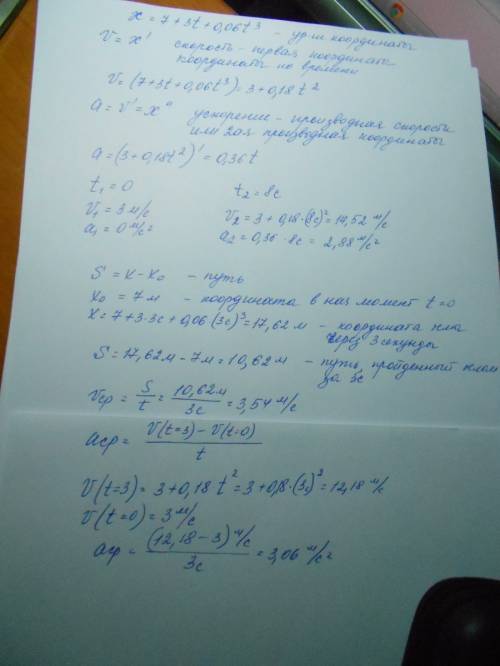 x = 7 + 3t + 0,06t³ - ур-ие координаты
V = x' скорость - первая координата
координаты по времени
V = (7+3t+0,06t³) = 3+0,18t²
a = V' = x'' ускорение - производная скорости
или 2ая производная координаты
a = (3+0,18t²)' = 0,36t
t₁ = 0 t₂ = 8c
V₁ = 3 м/c V₂ = 3 + 0,18·(8c)² = 14,52 м/c
a₁ = 0 м/c² a₂ = 0,36 · 8c = 2,88 м/c²
S = x - x₀ - путь
x₀ = 7м - координата в нач момент t = 0
x = 7 + 3·3c + 0,06(3c)³ = 17,62м - координата тела
через 3 секунды
S = 17,62м - 7м = 10,62м - путь, пройденный телом
за 3c
Vср = S/t = 10,62м/3c = 3,54 м/c
aср = V(t=3) - V(t=0)/t
V(t=3) = 3+0,18t² = 3+0,18·(3c)² = 12,18 м/c
V(t=0) = 3 м/c
aср = (12,18 - 3) м/c/3c = 3,06 м/c²